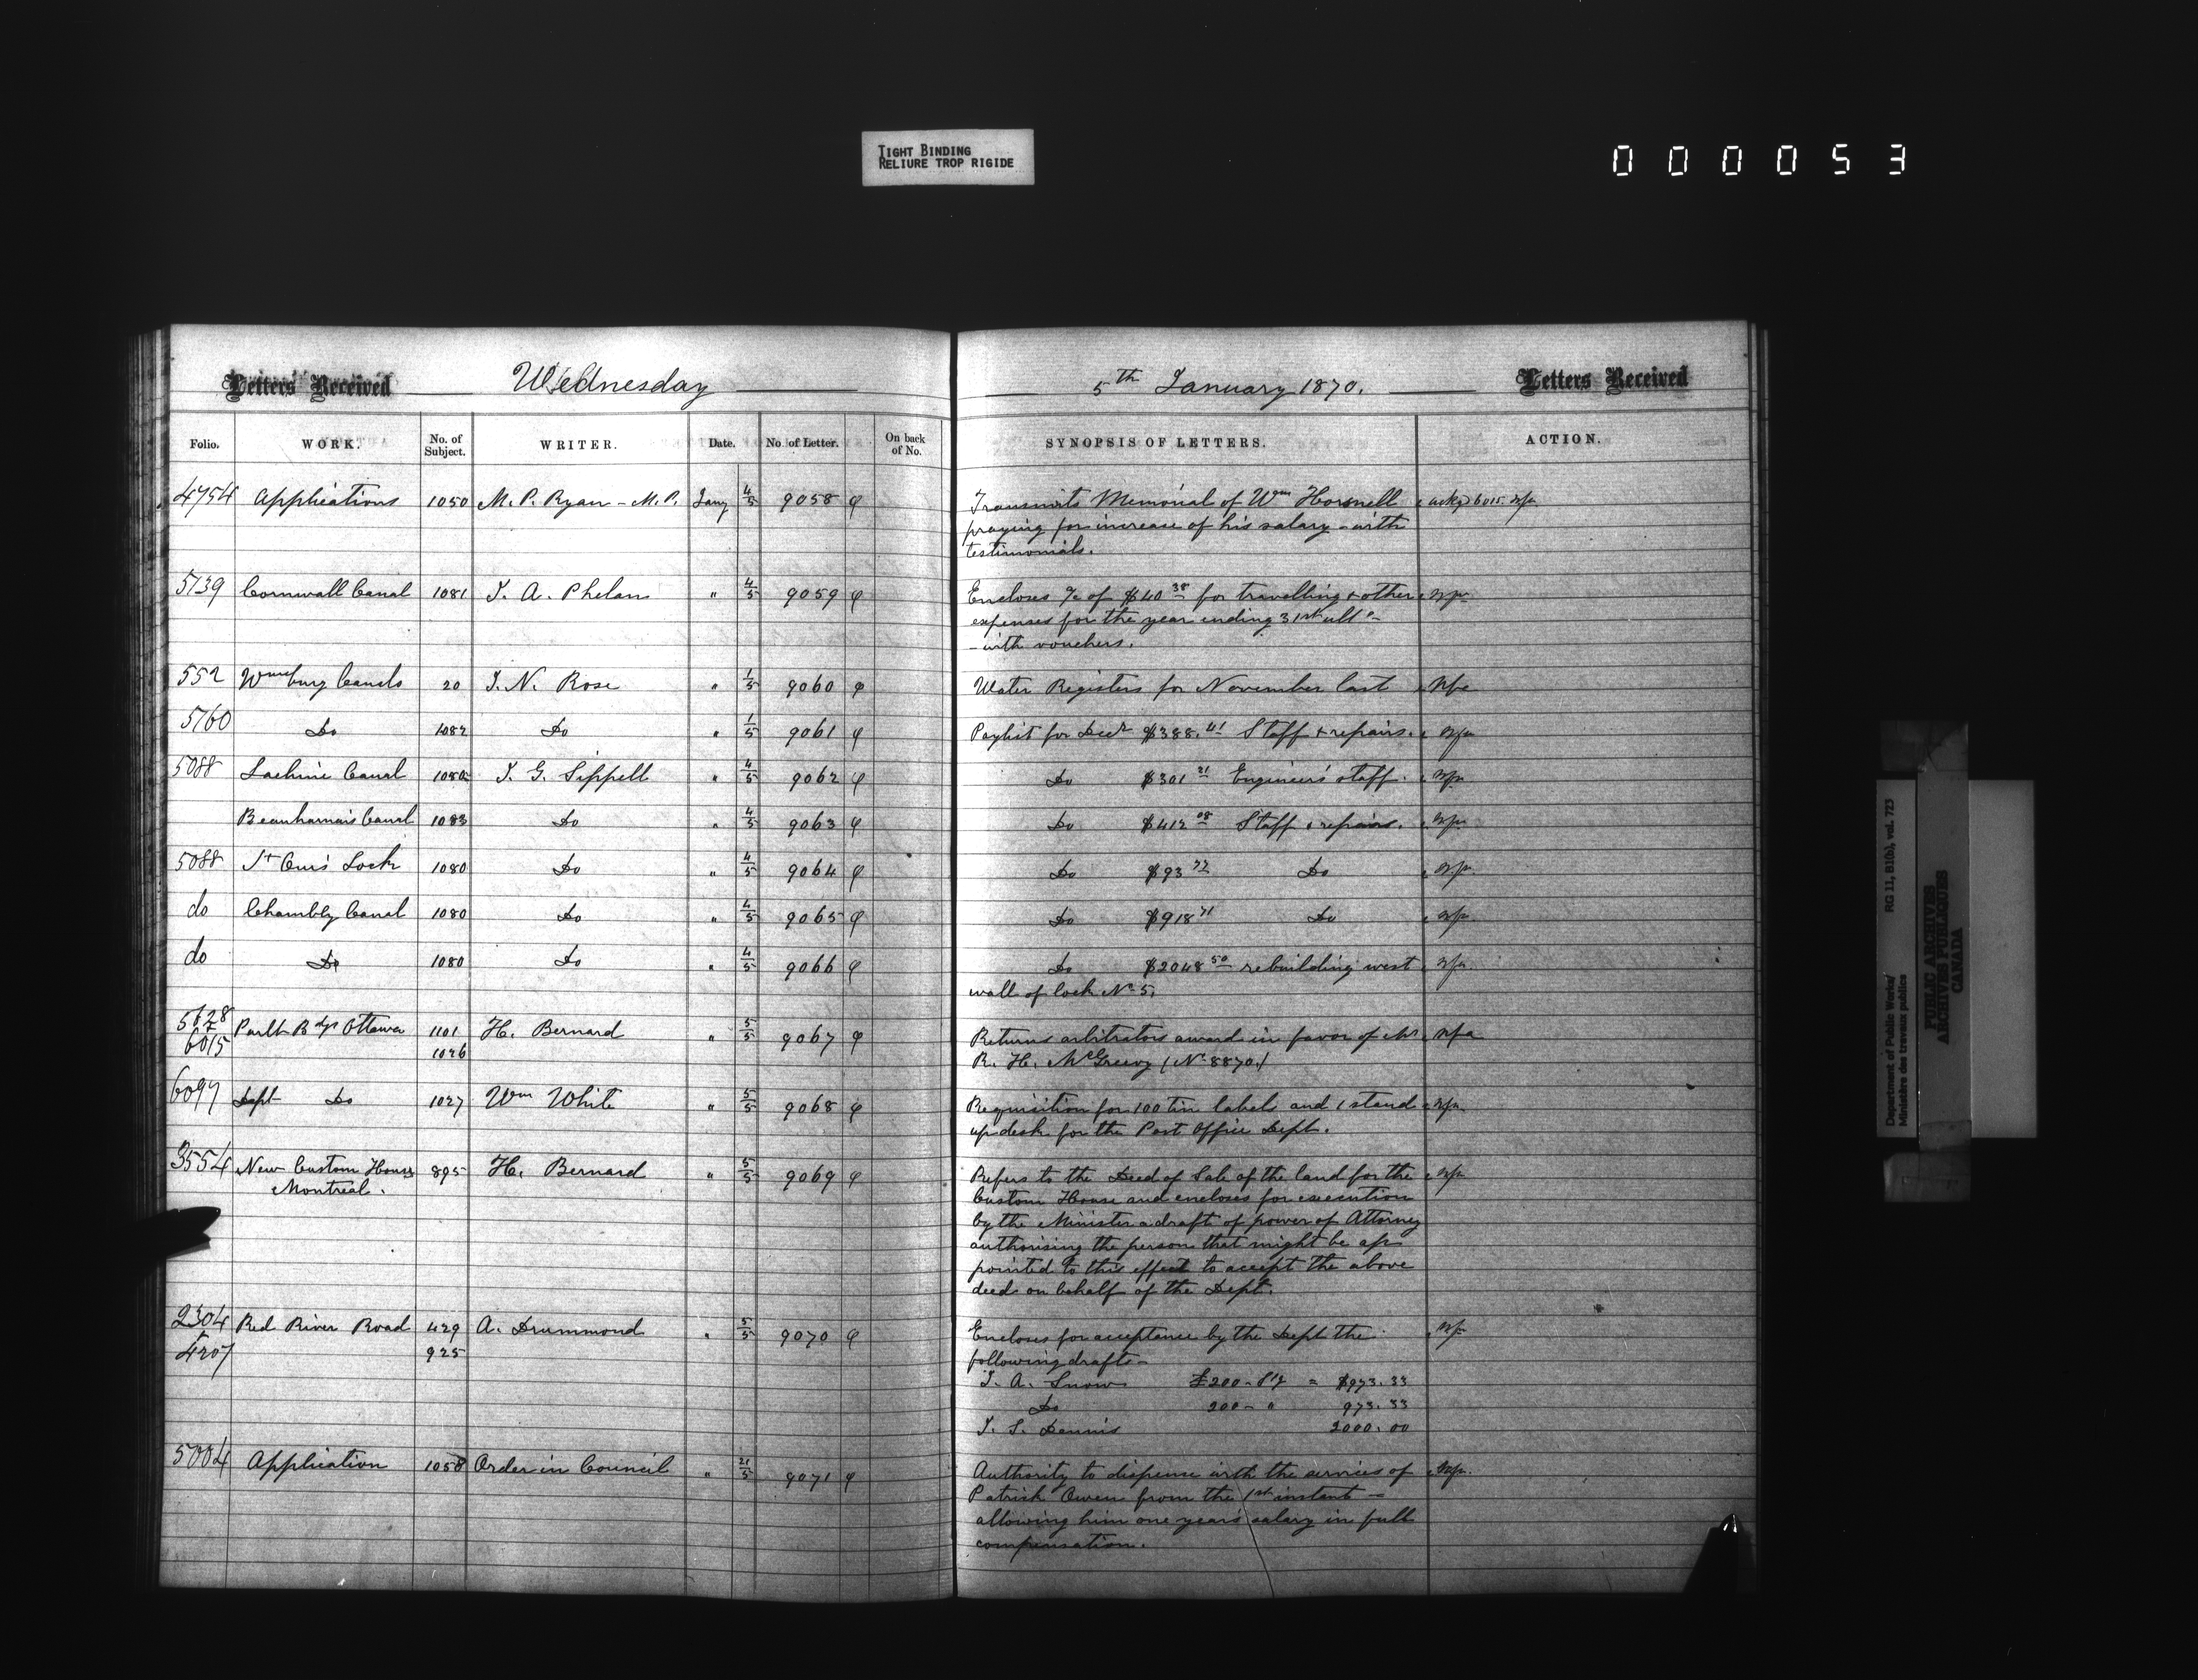 TIGHT BINDING
RELIURE TROP RIGIDE
000053
Letters Received Wednesday 5th January 1870. Letters Received
Folio. WORK. No. of Subject. WRITER. Date. No. of Letter. On back of No. SYNOPSIS OF LETTERS. ACTION.
4754 Applications 1050 M. P. Ryan - M.P. Jany 4/5 9058 Transmits Memorial of Wm Horsnell
praying for increase of his salary - with
testimonials.
5139 Cornwall Canal 1081 J. A. Phelan " 4/5 9059 Encloses a/c of $40 38 for travelling & other
expenses for the year ending 31st ulto -
- with vouchers.
552 Wmsburg Canals 20 J. N. Rose " 1/5 9060 Water Registers for November last Nfa
5160 Do 1082 Do " 1/5 9061 Paylist for Decr $388.41 Staff & repairs.
5088 Lachine Canal 1080 J. G. Sippell " 4/5 9062 Do $301 21 Engineer's staff.
Beauharnais Canal 1083 Do " 4/5 9063 Do $412 08 Staff & repairs.
5088 St Ours Lock 1080 Do " 4/5 9064 Do $93 Do
do Chambly Canal 1080 Do " 4/5 9065 Do $918 71 Do
do Do 1080 Do " 4/5 9066 Do $2048 50 rebuilding west
wall of lock No 5.
5628 Parlt Bdgs Ottawa 1101 H. Bernard " 5/5 9067 Returns arbitrators award in favor of Mr Nfa
6015 1026 R. H. McGreevy (No 8870.)
6097 Dept Do 1027 Wm White " 5/5 9068 Requisition for 100 tin labels and 1 stand
up desk for the Post Office Dept.
3554 New Custom House 895 H. Bernard " 5/5 9069 Refers to the Deed of Sale of the land for the
Montreal. Custom House and encloses for execution
by the Minister a draft of power of Attorney
authorising the person that might be ap
pointed to this effect to accept the above
deed on behalf of the Dept.
2304 Red River Road 429 A. Drummond " 5/5 9070 Encloses for acceptance by the Dept the
& 4207 925 following drafts -
J. A. Snow £200 - Stg = $973.33
Do 200 - " 973.33
J. S. Dennis 2000.00
5004 Application 1058 Order in Council " 21/5 9071 Authority to dispense with the services of
Patrick Owen from the 1st instant -
allowing him one years salary in full
compensation.
Department of Public Works/ RG 11, B1(b), vol. 723
Ministère des travaux publics
PUBLIC ARCHIVES
ARCHIVES PUBLIQUES
CANADA